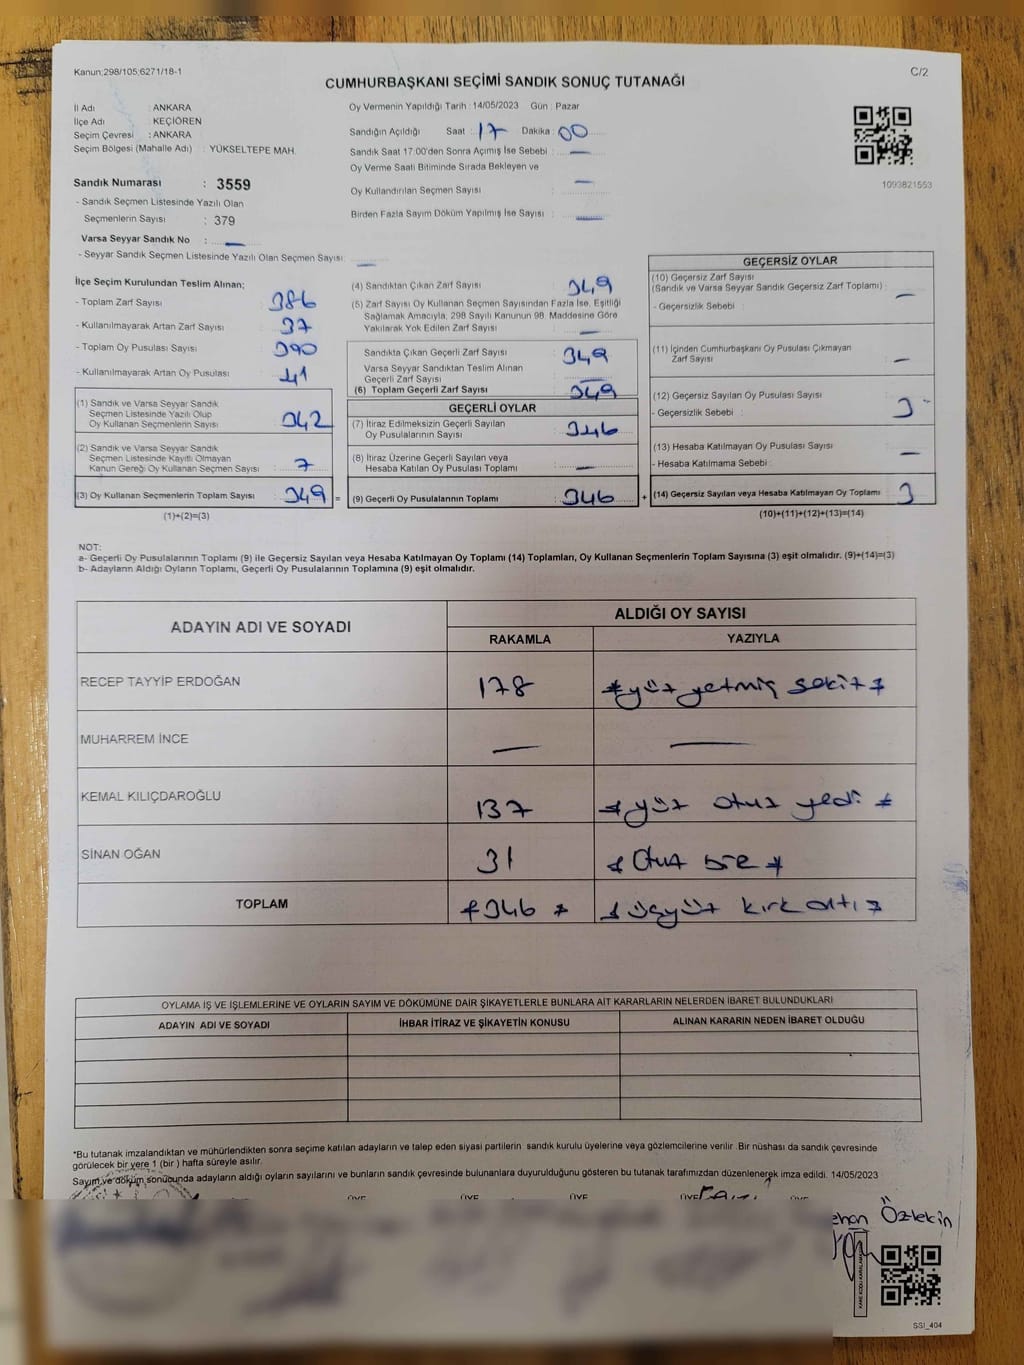 Kanun;298/105;6271/18-1
C/2
CUMHURBAŞKANI SEÇİMİ SANDIK SONUÇ TUTANAĞI
İl Adı : ANKARA
İlçe Adı : KEÇİÖREN
Seçim Çevresi : ANKARA
Seçim Bölgesi (Mahalle Adı) : YÜKSELTEPE MAH.
Sandık Numarası : 3559
- Sandık Seçmen Listesinde Yazılı Olan
Seçmenlerin Sayısı : 379
Varsa Seyyar Sandık No : —
- Seyyar Sandık Seçmen Listesinde Yazılı Olan Seçmen Sayısı: —
Oy Vermenin Yapıldığı Tarih : 14/05/2023 Gün : Pazar
Sandığın Açıldığı Saat : 17 Dakika : 00
Sandık Saat 17:00'den Sonra Açımış İse Sebebi : —
Oy Verme Saati Bitiminde Sırada Bekleyen ve
Oy Kullandırılan Seçmen Sayısı : —
Birden Fazla Sayım Döküm Yapılmış İse Sayısı : —
1093821553
İlçe Seçim Kurulundan Teslim Alınan;
- Toplam Zarf Sayısı : 386
- Kullanılmayarak Artan Zarf Sayısı : 37
- Toplam Oy Pusulası Sayısı : 390
- Kullanılmayarak Artan Oy Pusulası : 41
(1) Sandık ve Varsa Seyyar Sandık
Seçmen Listesinde Yazılı Olup
Oy Kullanan Seçmenlerin Sayısı : 342
(2) Sandık ve Varsa Seyyar Sandık
Seçmen Listesinde Kayıtlı Olmayan
Kanun Gereği Oy Kullanan Seçmen Sayısı : 7
(3) Oy Kullanan Seçmenlerin Toplam Sayısı : 349 =
(1)+(2)=(3)
(4) Sandıktan Çıkan Zarf Sayısı : 349
(5) Zarf Sayısı Oy Kullanan Seçmen Sayısından Fazla İse, Eşitliği
Sağlamak Amacıyla, 298 Sayılı Kanunun 98. Maddesine Göre
Yakılarak Yok Edilen Zarf Sayısı : —
Sandıkta Çıkan Geçerli Zarf Sayısı : 349
Varsa Seyyar Sandıktan Teslim Alınan
Geçerli Zarf Sayısı : —
(6) Toplam Geçerli Zarf Sayısı : 349
GEÇERLİ OYLAR
(7) İtiraz Edilmeksizin Geçerli Sayılan
Oy Pusulalarının Sayısı : 346
(8) İtiraz Üzerine Geçerli Sayılan veya
Hesaba Katılan Oy Pusulası Toplamı : —
(9) Geçerli Oy Pusulalarının Toplamı : 346 +
GEÇERSİZ OYLAR
(10) Geçersiz Zarf Sayısı
(Sandık ve Varsa Seyyar Sandık Geçersiz Zarf Toplamı) : —
- Geçersizlik Sebebi :
(11) İçinden Cumhurbaşkanı Oy Pusulası Çıkmayan
Zarf Sayısı : —
(12) Geçersiz Sayılan Oy Pusulası Sayısı : 3
- Geçersizlik Sebebi :
(13) Hesaba Katılmayan Oy Pusulası Sayısı : —
- Hesaba Katılmama Sebebi :
(14) Geçersiz Sayılan veya Hesaba Katılmayan Oy Toplamı : 3
(10)+(11)+(12)+(13)=(14)
NOT:
a- Geçerli Oy Pusulalarının Toplamı (9) ile Geçersiz Sayılan veya Hesaba Katılmayan Oy Toplamı (14) Toplamları, Oy Kullanan Seçmenlerin Toplam Sayısına (3) eşit olmalıdır. (9)+(14)=(3)
b- Adayların Aldığı Oyların Toplamı, Geçerli Oy Pusulalarının Toplamına (9) eşit olmalıdır.
ADAYIN ADI VE SOYADI
ALDIĞI OY SAYISI
RAKAMLA YAZIYLA
RECEP TAYYİP ERDOĞAN 178 *yüz yetmiş sekiz*
MUHARREM İNCE — —
KEMAL KILIÇDAROĞLU 137 *yüz otuz yedi *
SİNAN OĞAN 31 * Otuz bir *
TOPLAM *346 * * üçyüz kırk altı *
OYLAMA İŞ VE İŞLEMLERİNE VE OYLARIN SAYIM VE DÖKÜMÜNE DAİR ŞİKAYETLERLE BUNLARA AİT KARARLARIN NELERDEN İBARET BULUNDUKLARI
ADAYIN ADI VE SOYADI İHBAR İTİRAZ VE ŞİKAYETİN KONUSU ALINAN KARARIN NEDEN İBARET OLDUĞU
*Bu tutanak imzalandıktan ve mühürlendikten sonra seçime katılan adayların ve talep eden siyasi partilerin sandık kurulu üyelerine veya gözlemcilerine verilir .Bir nüshası da sandık çevresinde
görülecek bir yere 1 (bir ) hafta süreyle asılır.
Sayım ve döküm sonucunda adayların aldığı oyların sayılarını ve bunların sandık çevresinde bulunanlara duyurulduğunu gösteren bu tutanak tarafımızdan düzenlenerek imza edildi. 14/05/2023
ÜYE ÜYE ÜYE ÜYE ÜYE
Özlekin
SSI_404